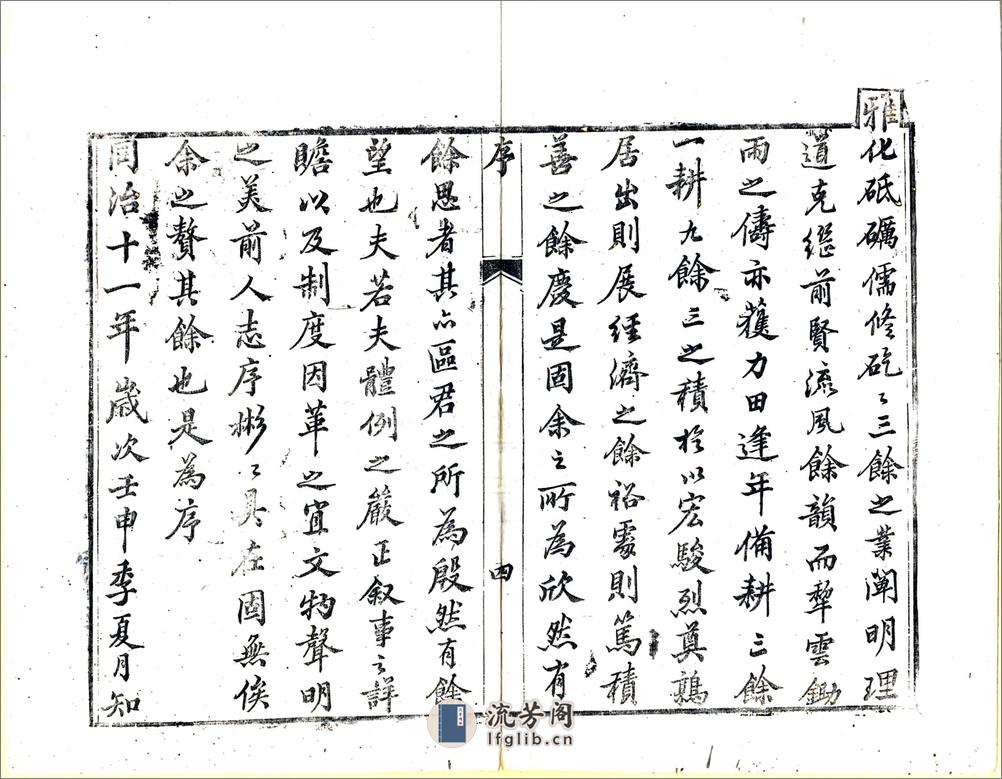 雅化砥礪儒修矻〻三餘之業闡明理
道克繼前賢流風餘韻而犂雲鋤
雨之儔亦獲力田逢年備耕三餘
一耕九餘三之積於以宏駿烈奠鴻
居出則展經濟之餘裕處則篤積
善之餘慶是固余之所為欣然有
序
四
餘思者其亦區君之所為殷然有餘
望也夫若夫體例之嚴正敘事之詳
贍以及制度因革之宜文物聲明
之美前人志序彬〻具在固無俟
余之贅其餘也是為序
同治十一年歲次壬申季夏月知
流芳阁
lfglib.cn